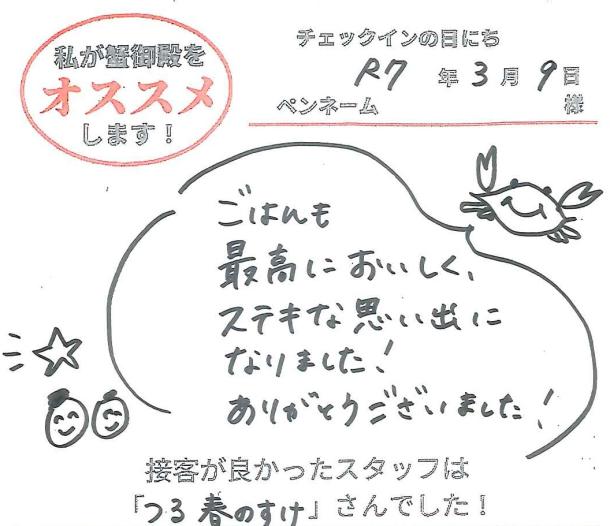 私が蟹御殿を
オススメ
します!
チェックインの日にち
R7 年 3月 9日
ペンネーム 様
ごはんも
最高においしく、
ステキな思い出に
なりました!
ありがとうございました!
接客が良かったスタッフは
「つる 春のすけ」さんでした!